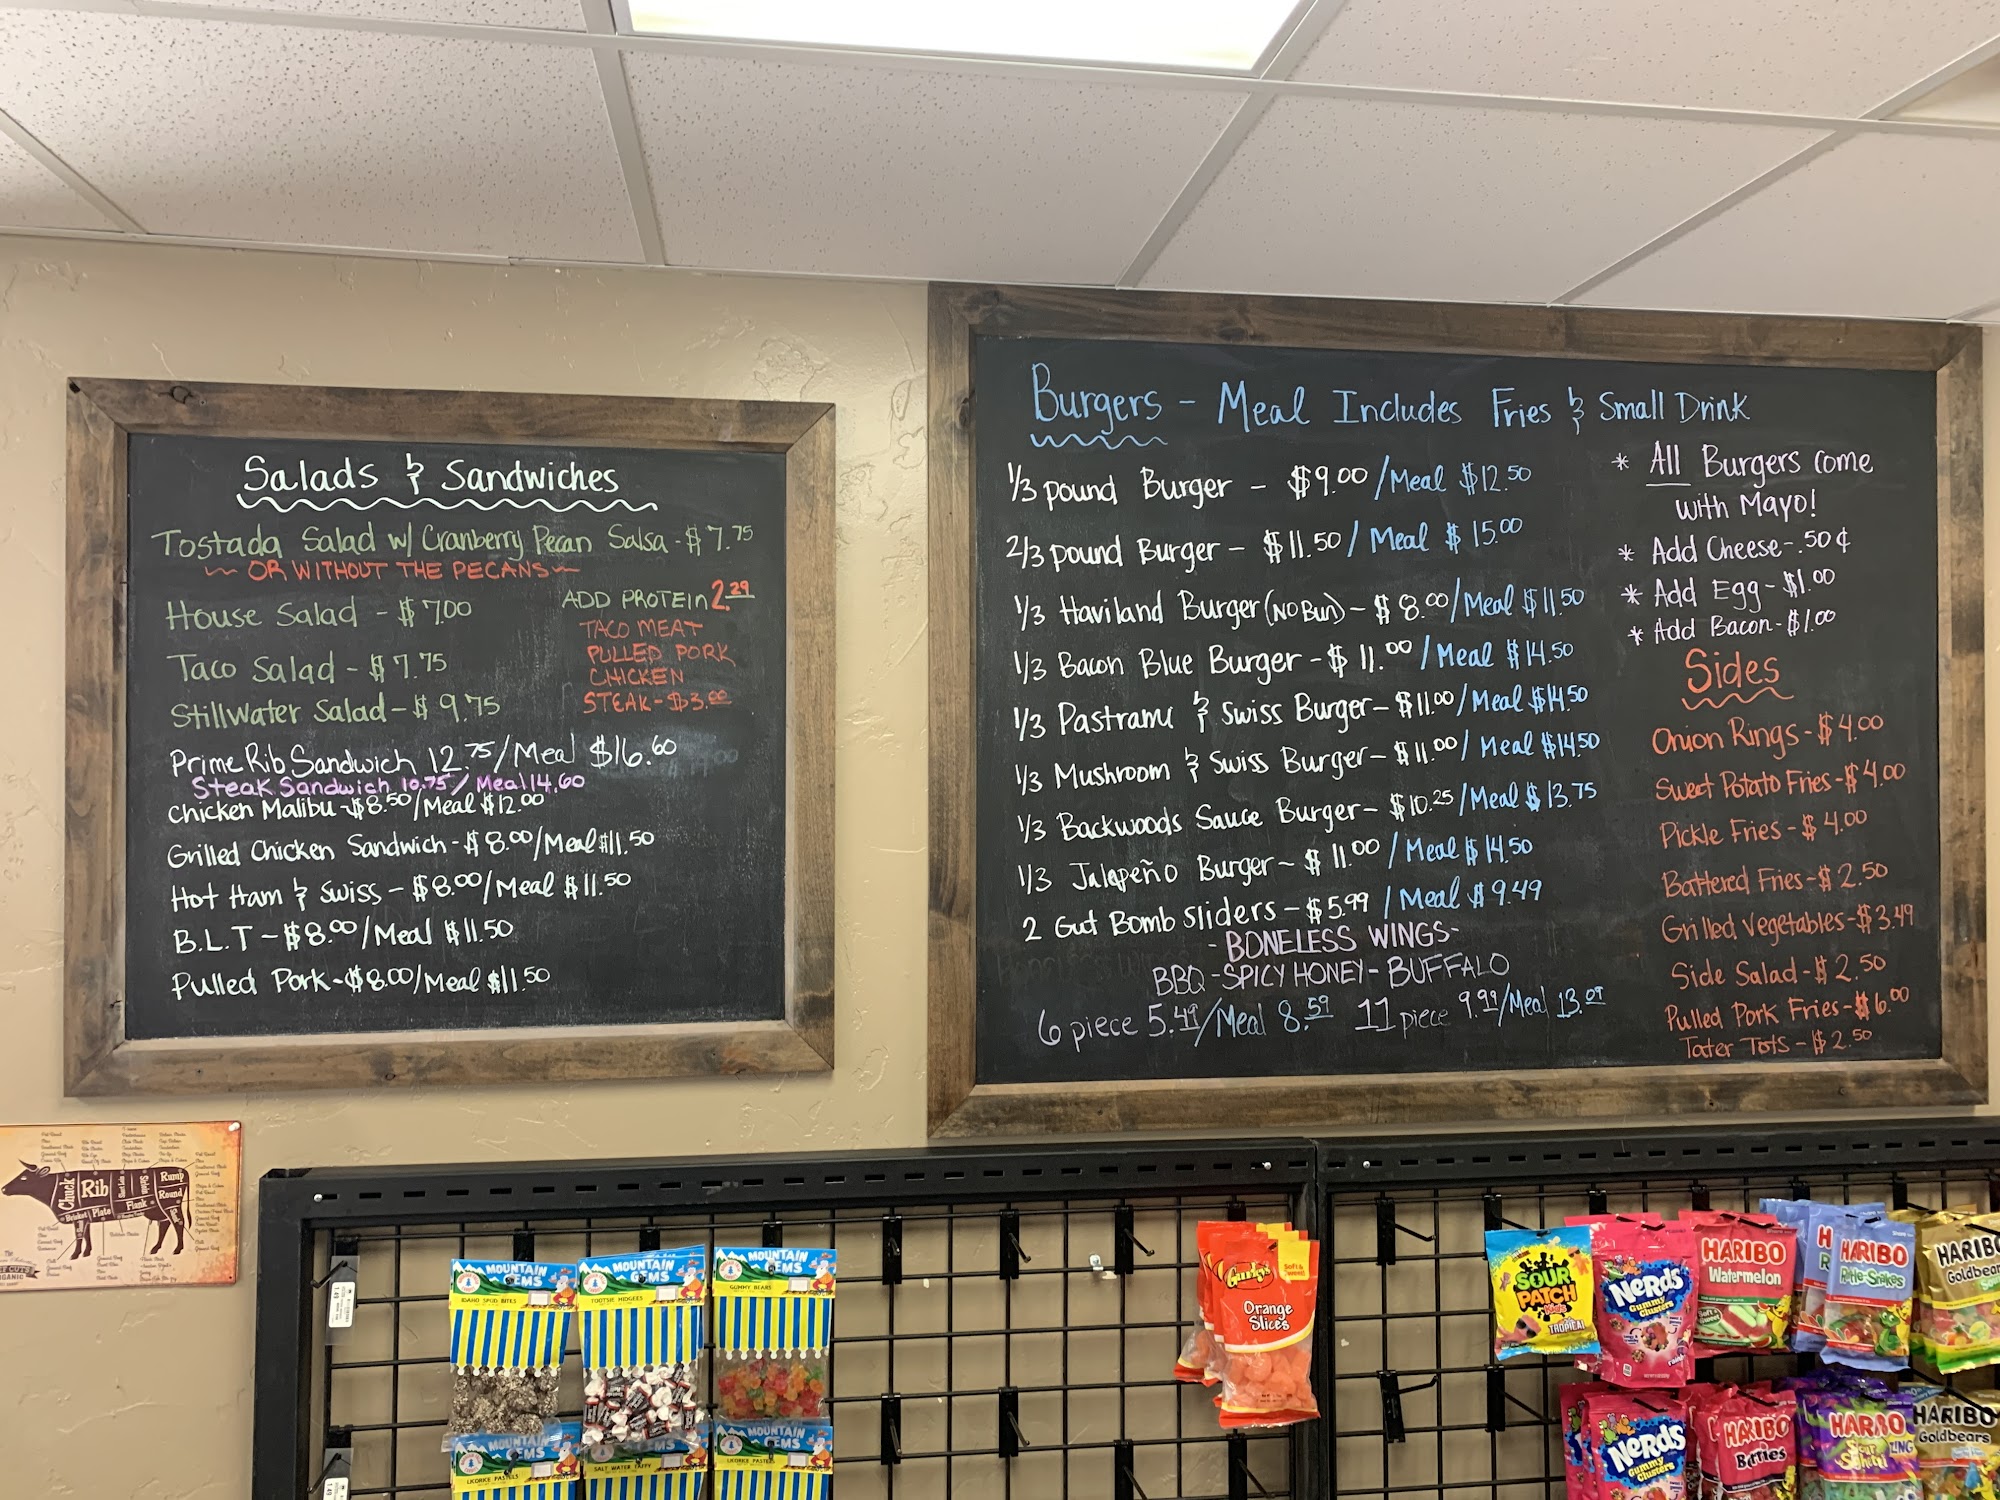 Salads & Sandwiches
Tostada Salad w/ Cranberry Pecan Salsa - $7.75
~ OR WITHOUT THE PECANS ~
House Salad - $7.00
Taco Salad - $7.75
Stillwater Salad - $9.75
ADD PROTEIN 2.29
TACO MEAT
PULLED PORK
CHICKEN
STEAK - $3.00
Prime Rib Sandwich 12.75/Meal $16.60
Steak Sandwich 10.75/Meal 14.60
Chicken Malibu - $8.50/Meal $12.00
Grilled Chicken Sandwich - $8.00/Meal $11.50
Hot Ham & Swiss - $8.00/Meal $11.50
B.L.T - $8.00/Meal $11.50
Pulled Pork - $8.00/Meal $11.50
Burgers - Meal Includes Fries & Small Drink
1/3 pound Burger - $9.00/Meal $12.50
2/3 pound Burger - $11.50/Meal $15.00
1/3 Haviland Burger (No Bun) - $8.00/Meal $11.50
1/3 Bacon Blue Burger - $11.00/Meal $14.50
1/3 Pastrami & Swiss Burger - $11.00/Meal $14.50
1/3 Mushroom & Swiss Burger - $11.00/Meal $14.50
1/3 Backwoods Sauce Burger - $10.25/Meal $13.75
1/3 Jalapeño Burger - $11.00/Meal $14.50
2 Gut Bomb Sliders - $5.99/Meal $9.49
- BONELESS WINGS -
BBQ - SPICY HONEY - BUFFALO
6 piece 5.49/Meal 8.59 11 piece 9.99/Meal 13.09
* All Burgers come
with Mayo!
* Add Cheese - .50¢
* Add Egg - $1.00
* Add Bacon - $1.00
Sides
Onion Rings - $4.00
Sweet Potato Fries - $4.00
Pickle Fries - $4.00
Battered Fries - $2.50
Grilled Vegetables - $3.49
Side Salad - $2.50
Pulled Pork Fries - $6.00
Tater Tots - $2.50
Chuck
Rib
Rump
Round
Brisket
Plate
Flank
MOUNTAIN GEMS
IDAHO SPUD BITES
MOUNTAIN GEMS
TOOTSIE MIDGEES
MOUNTAIN GEMS
GUMMY BEARS
MOUNTAIN GEMS
LICORICE PASTELS
MOUNTAIN GEMS
SALT WATER TAFFY
MOUNTAIN GEMS
LICORICE PASTELS
Gurley's
Orange
Slices
SOUR
PATCH
Kids
TROPICAL
NERDS
Gummy
Clusters
HARIBO
Watermelon
HARIBO
Rattle-Snakes
HARIBO
Goldbears
NERDS
Gummy
Clusters
HARIBO
Berries
HARIBO
Sour
HARIBO
Goldbears